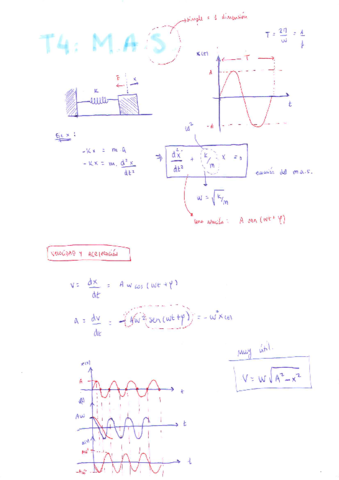 simple = 1 dimensión
T4: M.A.S
T = 2π/ω = 1/f
x(t)
T
A
-A
t
K
F
x
En x:
-Kx = m·a
-Kx = m· d²x/dt²
⇒ d²x/dt² + K/m · x = 0
ω²
ecuación del m.a.s.
ω = √K/m
una solución: A sen(ωt + φ)
VELOCIDAD Y ACELERACIÓN
V = dx/dt = A ω cos(ωt + φ)
a = dv/dt = -Aω² sen(ωt + φ) = -ω² x(t)
muy útil
V = ω√A² - x²
x(t)
A
t
Aω
t
t